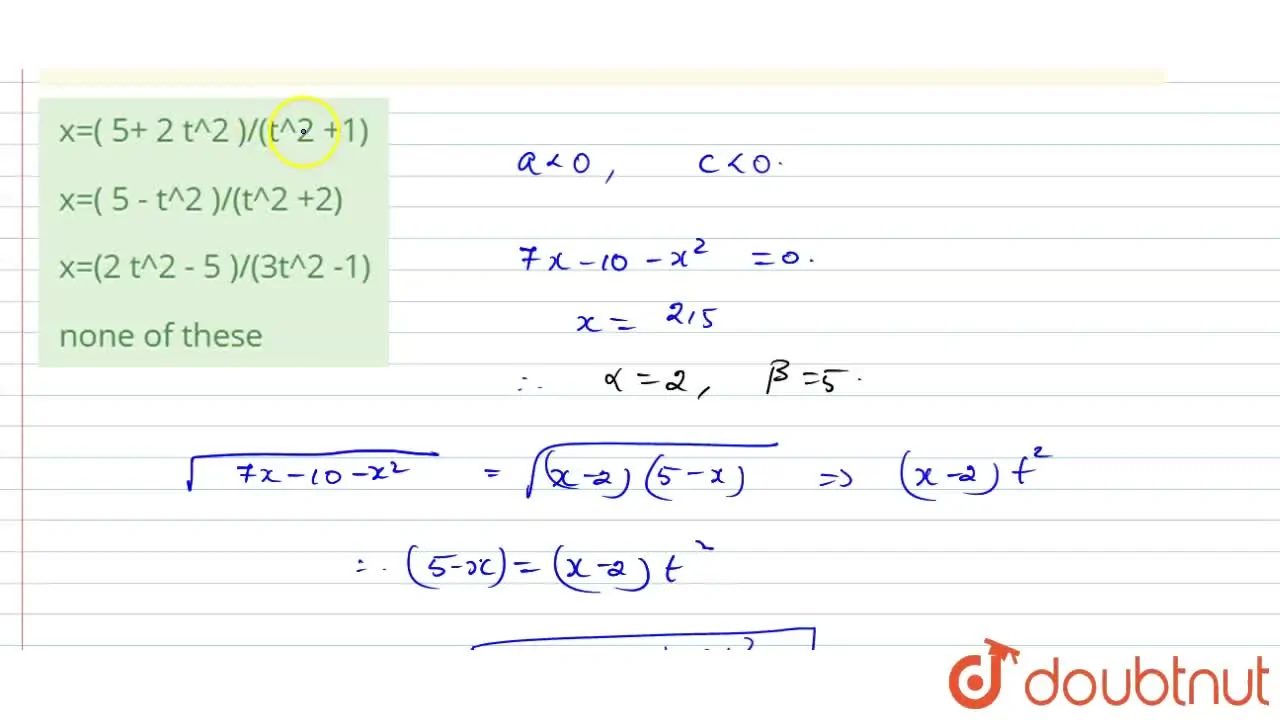 x=( 5+ 2 t^2 )/(t^2 +1)
x=( 5 - t^2 )/(t^2 +2)
x=(2 t^2 - 5 )/(3t^2 -1)
none of these
a<0, c<0.
7x-10-x² =0.
x= 2,5
∴ α=2, β=5.
√(7x-10-x²) = √((x-2)(5-x)) ⇒ (x-2) t²
∴ (5-x)=(x-2) t²
doubtnut